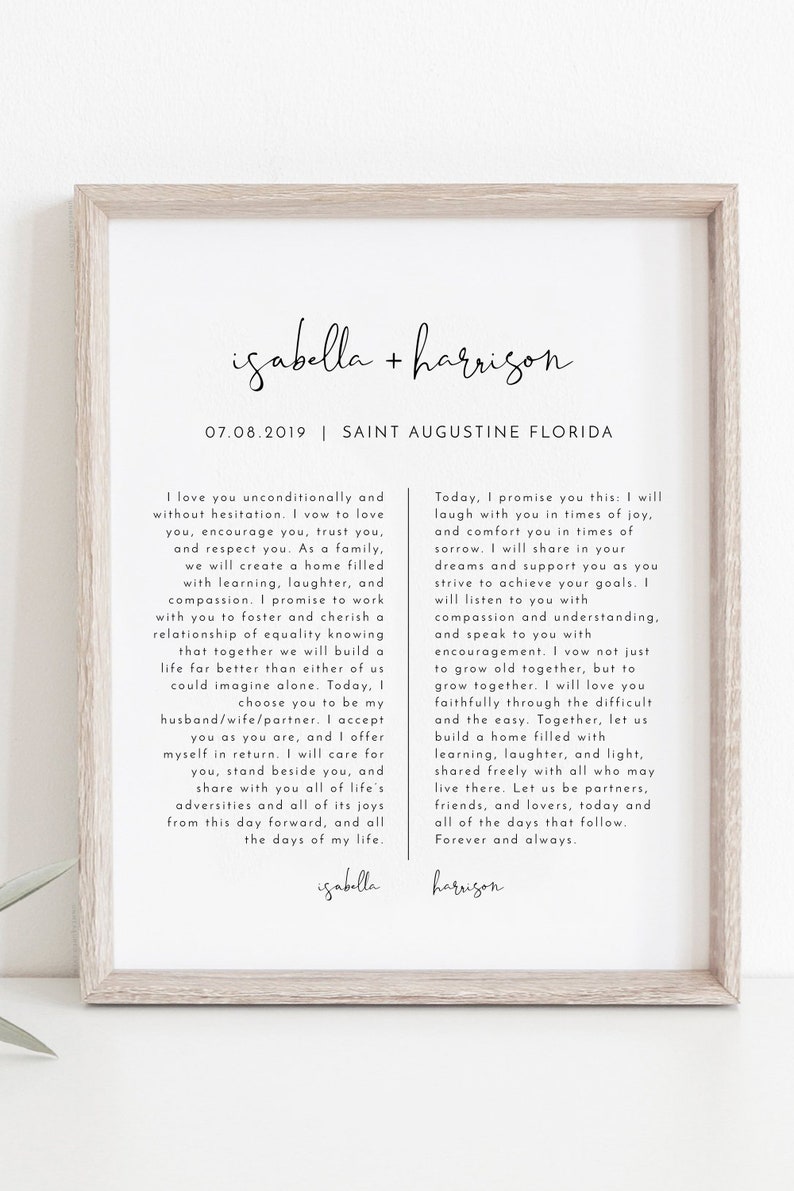 isabella + harrison
07.08.2019 | SAINT AUGUSTINE FLORIDA
I love you unconditionally and
without hesitation. I vow to love
you, encourage you, trust you,
and respect you. As a family,
we will create a home filled
with learning, laughter, and
compassion. I promise to work
with you to foster and cherish a
relationship of equality knowing
that together we will build a
life far better than either of us
could imagine alone. Today, I
choose you to be my
husband/wife/partner. I accept
you as you are, and I offer
myself in return. I will care for
you, stand beside you, and
share with you all of life's
adversities and all of its joys
from this day forward, and all
the days of my life.
isabella
Today, I promise you this: I will
laugh with you in times of joy,
and comfort you in times of
sorrow. I will share in your
dreams and support you as you
strive to achieve your goals. I
will listen to you with
compassion and understanding,
and speak to you with
encouragement. I vow not just
to grow old together, but to
grow together. I will love you
faithfully through the difficult
and the easy. Together, let us
build a home filled with
learning, laughter, and light,
shared freely with all who may
live there. Let us be partners,
friends, and lovers, today and
all of the days that follow.
Forever and always.
harrison